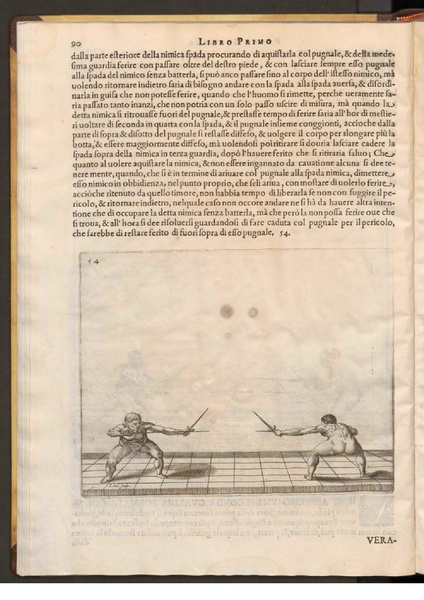 90 LIBRO PRIMO
dalla parte esteriore della nimica spada procurando di aquistarla col pugnale, & della mede-
sima guardia ferire con passare oltre del destro piede, & con lasciare sempre esso pugnale
alla spada del nimico senza batterla, si può anco passare sino al corpo dell'istesso nimico, mà
uolendo ritornare indietro saria di bisogno andare con la spada alla spada auersa, & disordi-
narla in guisa che non potesse ferire, quando che l'huomo si rimette, perche ueramente sa-
ria passato tanto inanzi, che non potria con un solo passo uscire di misura, mà quando la
detta nimica si ritrouasse fuori del pugnale, & prestasse tempo di ferire saria all'hor di mestie-
ri uoltare di seconda in quarta con la spada, & il pugnale insieme congionti, accioche dalla
parte di sopra & disotto del pugnale si restasse diffeso, & uolgere il corpo per slongare più la
botta, & essere maggiormente diffeso, mà uolendosi poi ritirare si douria lasciare cadere la
spada sopra della nimica in terza guardia, dopò l'hauere ferito che si ritiraria saluo; Che
quanto al uolere aquistare la nimica, & non essere ingannato da cauatione alcuna si dee te-
nere mente, quando, che si è in termine di ariuare col pugnale alla spada nimica, dimettere
esso nimico in obbidienza, nel punto proprio, che seli ariua, con mostrare di uolerlo ferire,
acciòche ritenuto da quello timore, non habbia tempo di liberarla se non con fuggire il pe-
ricolo, & ritornare indietro, nelquale caso non occore andare ne si hà da hauere altra inten-
tione che di occupare la detta nimica senza batterla, mà che però la non possa ferire oue che
si troua, & all'hora si dee risoluersi guardandosi di fare caduta col pugnale per il pericolo,
che sarebbe di restare ferito di fuori sopra di esso pugnale. 54.
54
VERA-